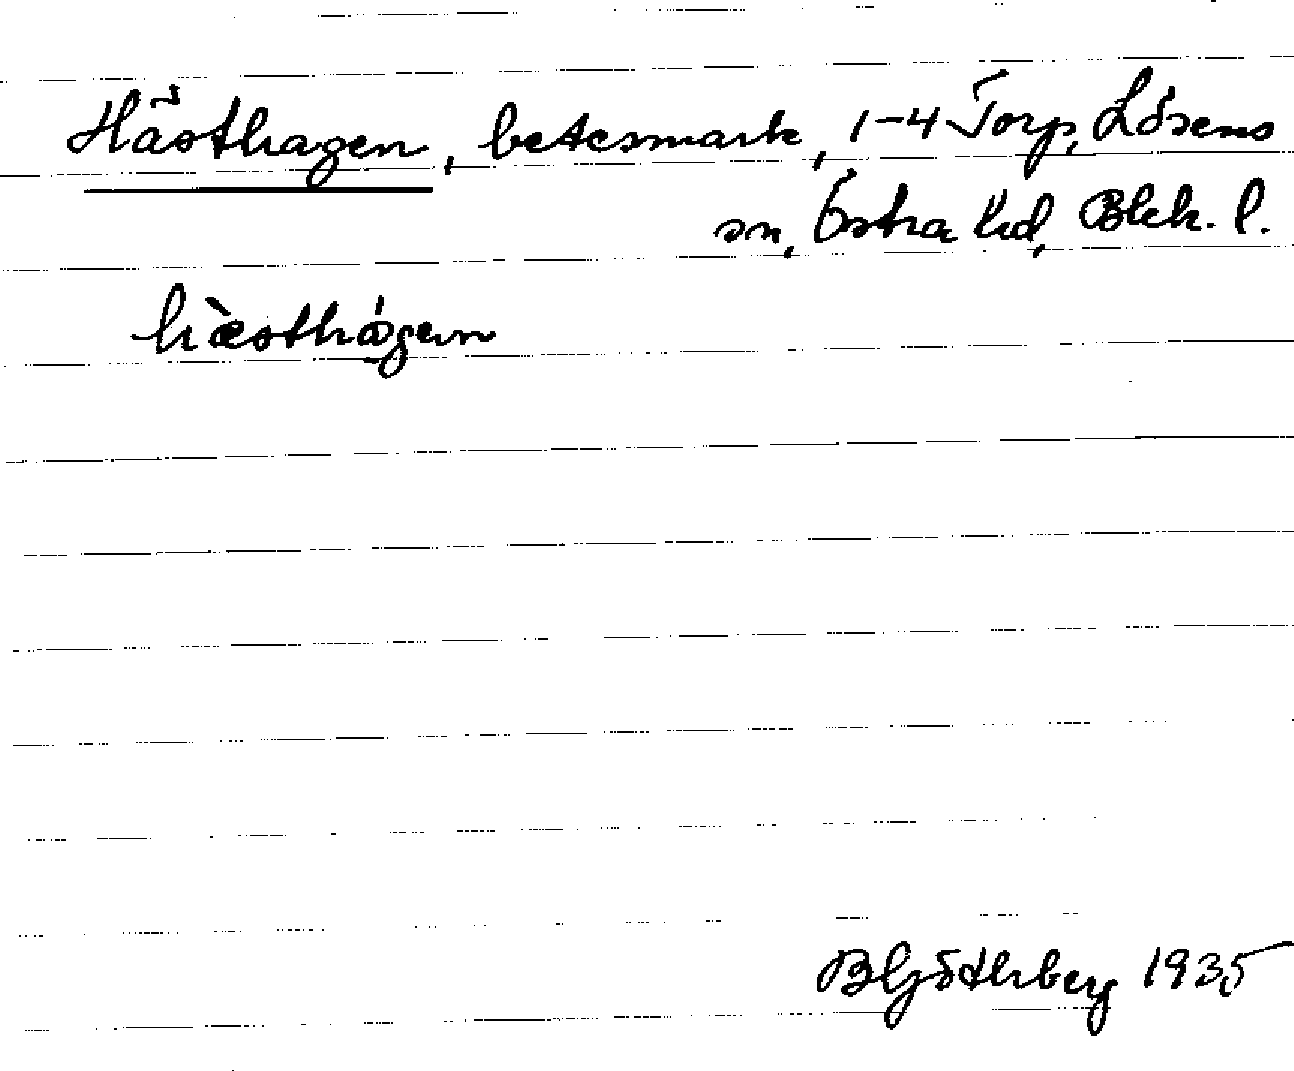 Hästhagen, betesmark, 1-4 Torp, Lösens
sn, Östra hd, Blek. l.
hæ̀sthágen
B Göthberg 1935